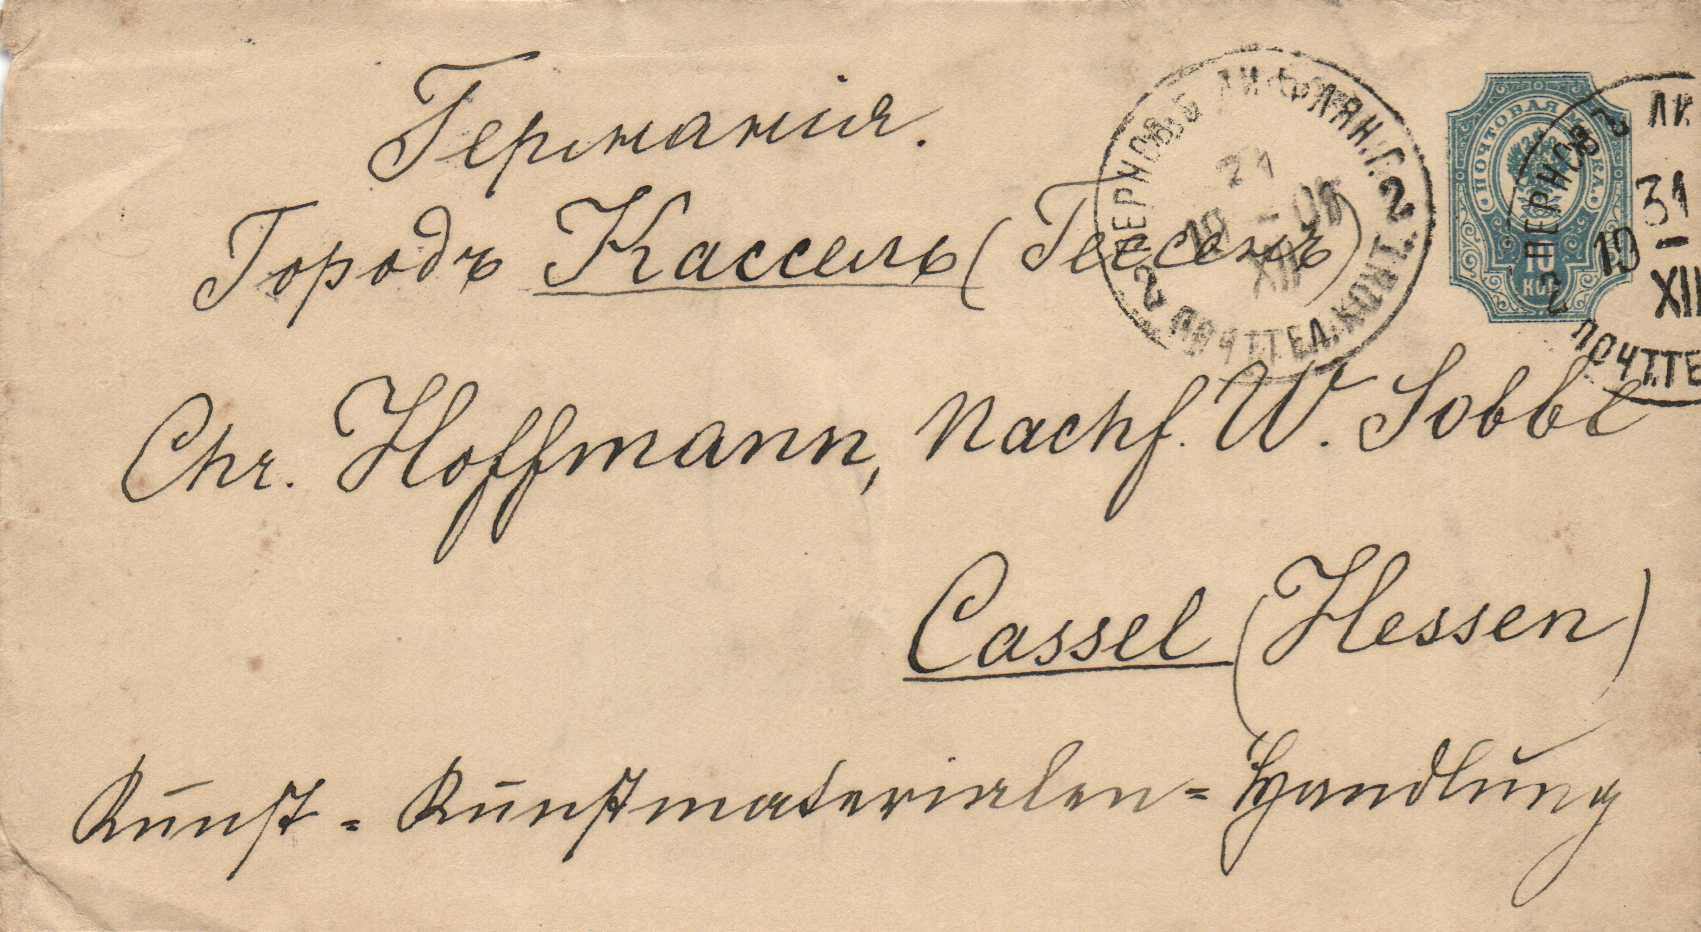 Германія.
Городъ Кассель (Гессенъ)
Chr. Hoffmann, Nachf. W. Sobbe
Cassel (Hessen)
Kunst- Kunstmaterialen-Handlung
ПЕРНОВЪ ЛИФЛЯН. Г.
31
19 –
XII
2 ПОЧТ.ТЕЛ.КОНТ. 2
ПОЧТОВАЯ МАРКА.
10
КОП
ПЕРНОВЪ ЛИ
31
19 –
XII
2 ПОЧТ.ТЕ